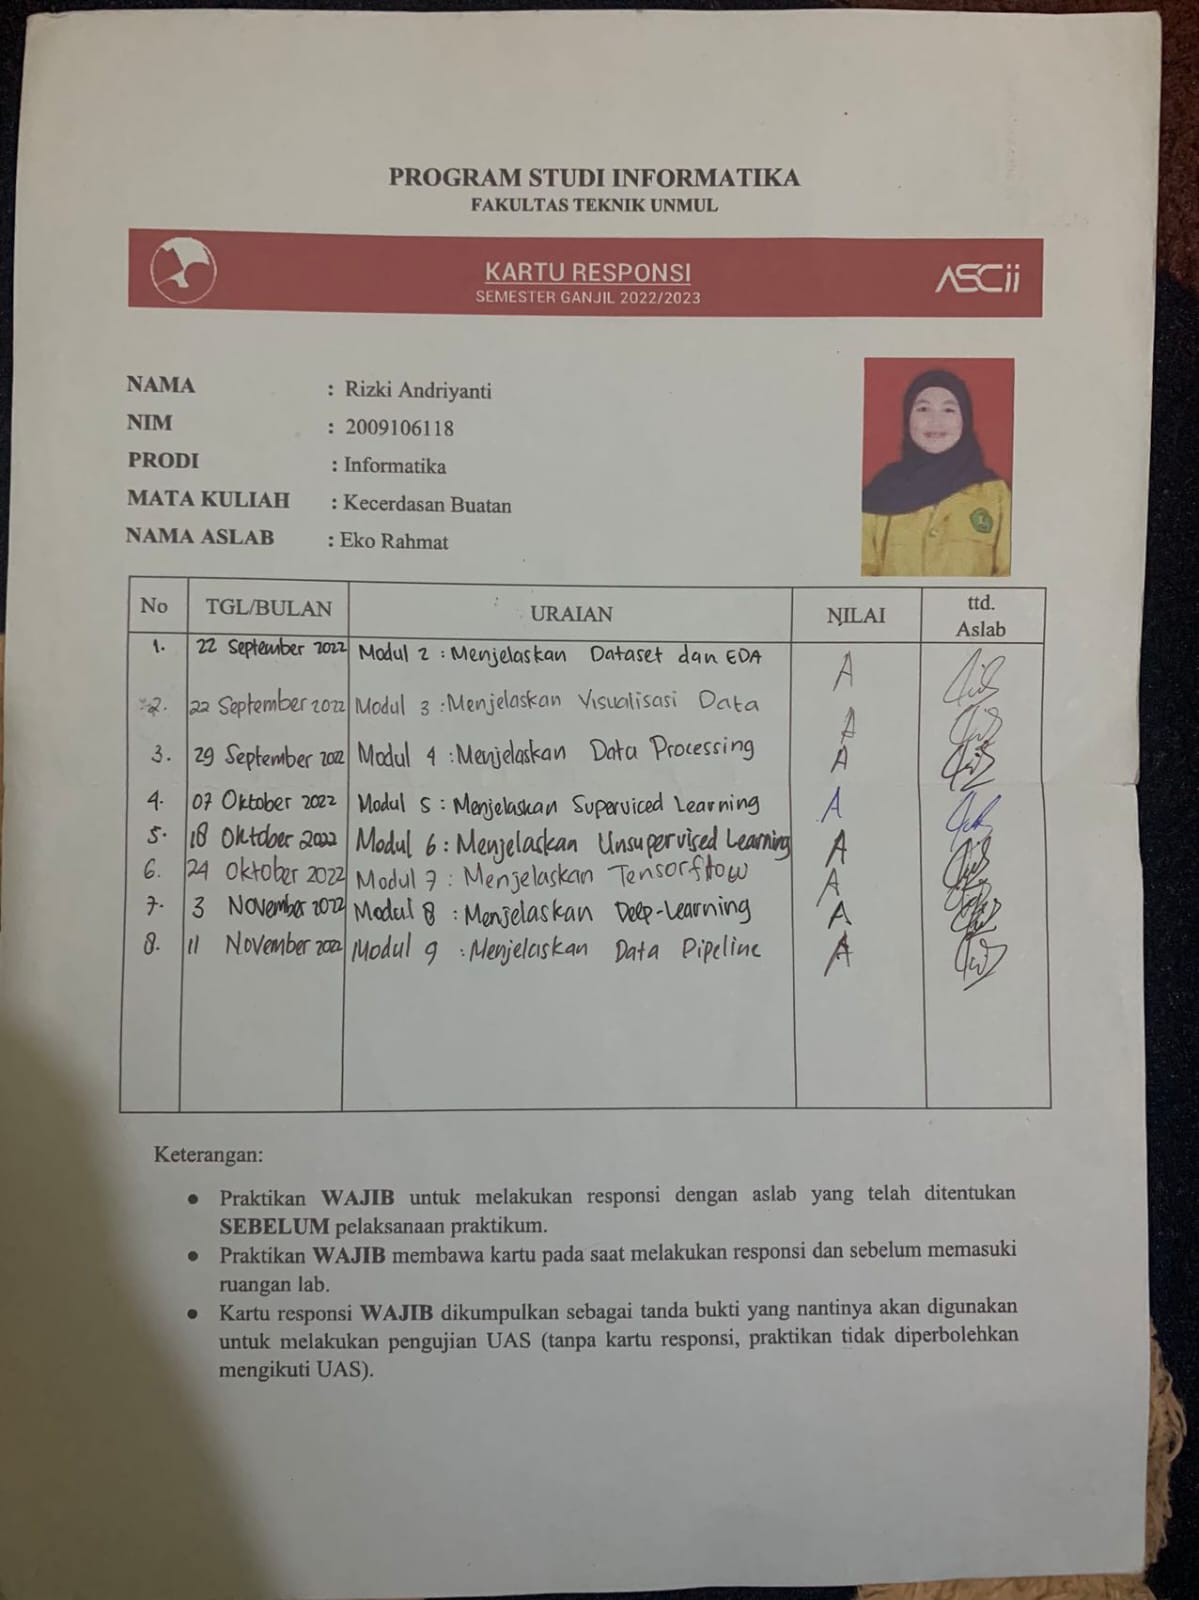 PROGRAM STUDI INFORMATIKA
FAKULTAS TEKNIK UNMUL
KARTU RESPONSI
SEMESTER GANJIL 2022/2023
ASCii
NAMA : Rizki Andriyanti
NIM : 2009106118
PRODI : Informatika
MATA KULIAH : Kecerdasan Buatan
NAMA ASLAB : Eko Rahmat
No TGL/BULAN URAIAN NILAI ttd. Aslab
1. 22 September 2022 Modul 2 : Menjelaskan Dataset dan EDA A
2. 22 September 2022 Modul 3 : Menjelaskan Visualisasi Data A
3. 29 September 2022 Modul 4 : Menjelaskan Data Processing A
4. 07 Oktober 2022 Modul 5 : Menjelaskan Superviced Learning A
5. 18 Oktober 2022 Modul 6 : Menjelaskan Unsupervised Learning A
6. 24 Oktober 2022 Modul 7 : Menjelaskan Tensorflow A
7. 3 November 2022 Modul 8 : Menjelaskan Deep-Learning A
8. 11 November 2022 Modul 9 : Menjelaskan Data Pipeline A
Keterangan:
● Praktikan WAJIB untuk melakukan responsi dengan aslab yang telah ditentukan
SEBELUM pelaksanaan praktikum.
● Praktikan WAJIB membawa kartu pada saat melakukan responsi dan sebelum memasuki
ruangan lab.
● Kartu responsi WAJIB dikumpulkan sebagai tanda bukti yang nantinya akan digunakan
untuk melakukan pengujian UAS (tanpa kartu responsi, praktikan tidak diperbolehkan
mengikuti UAS).